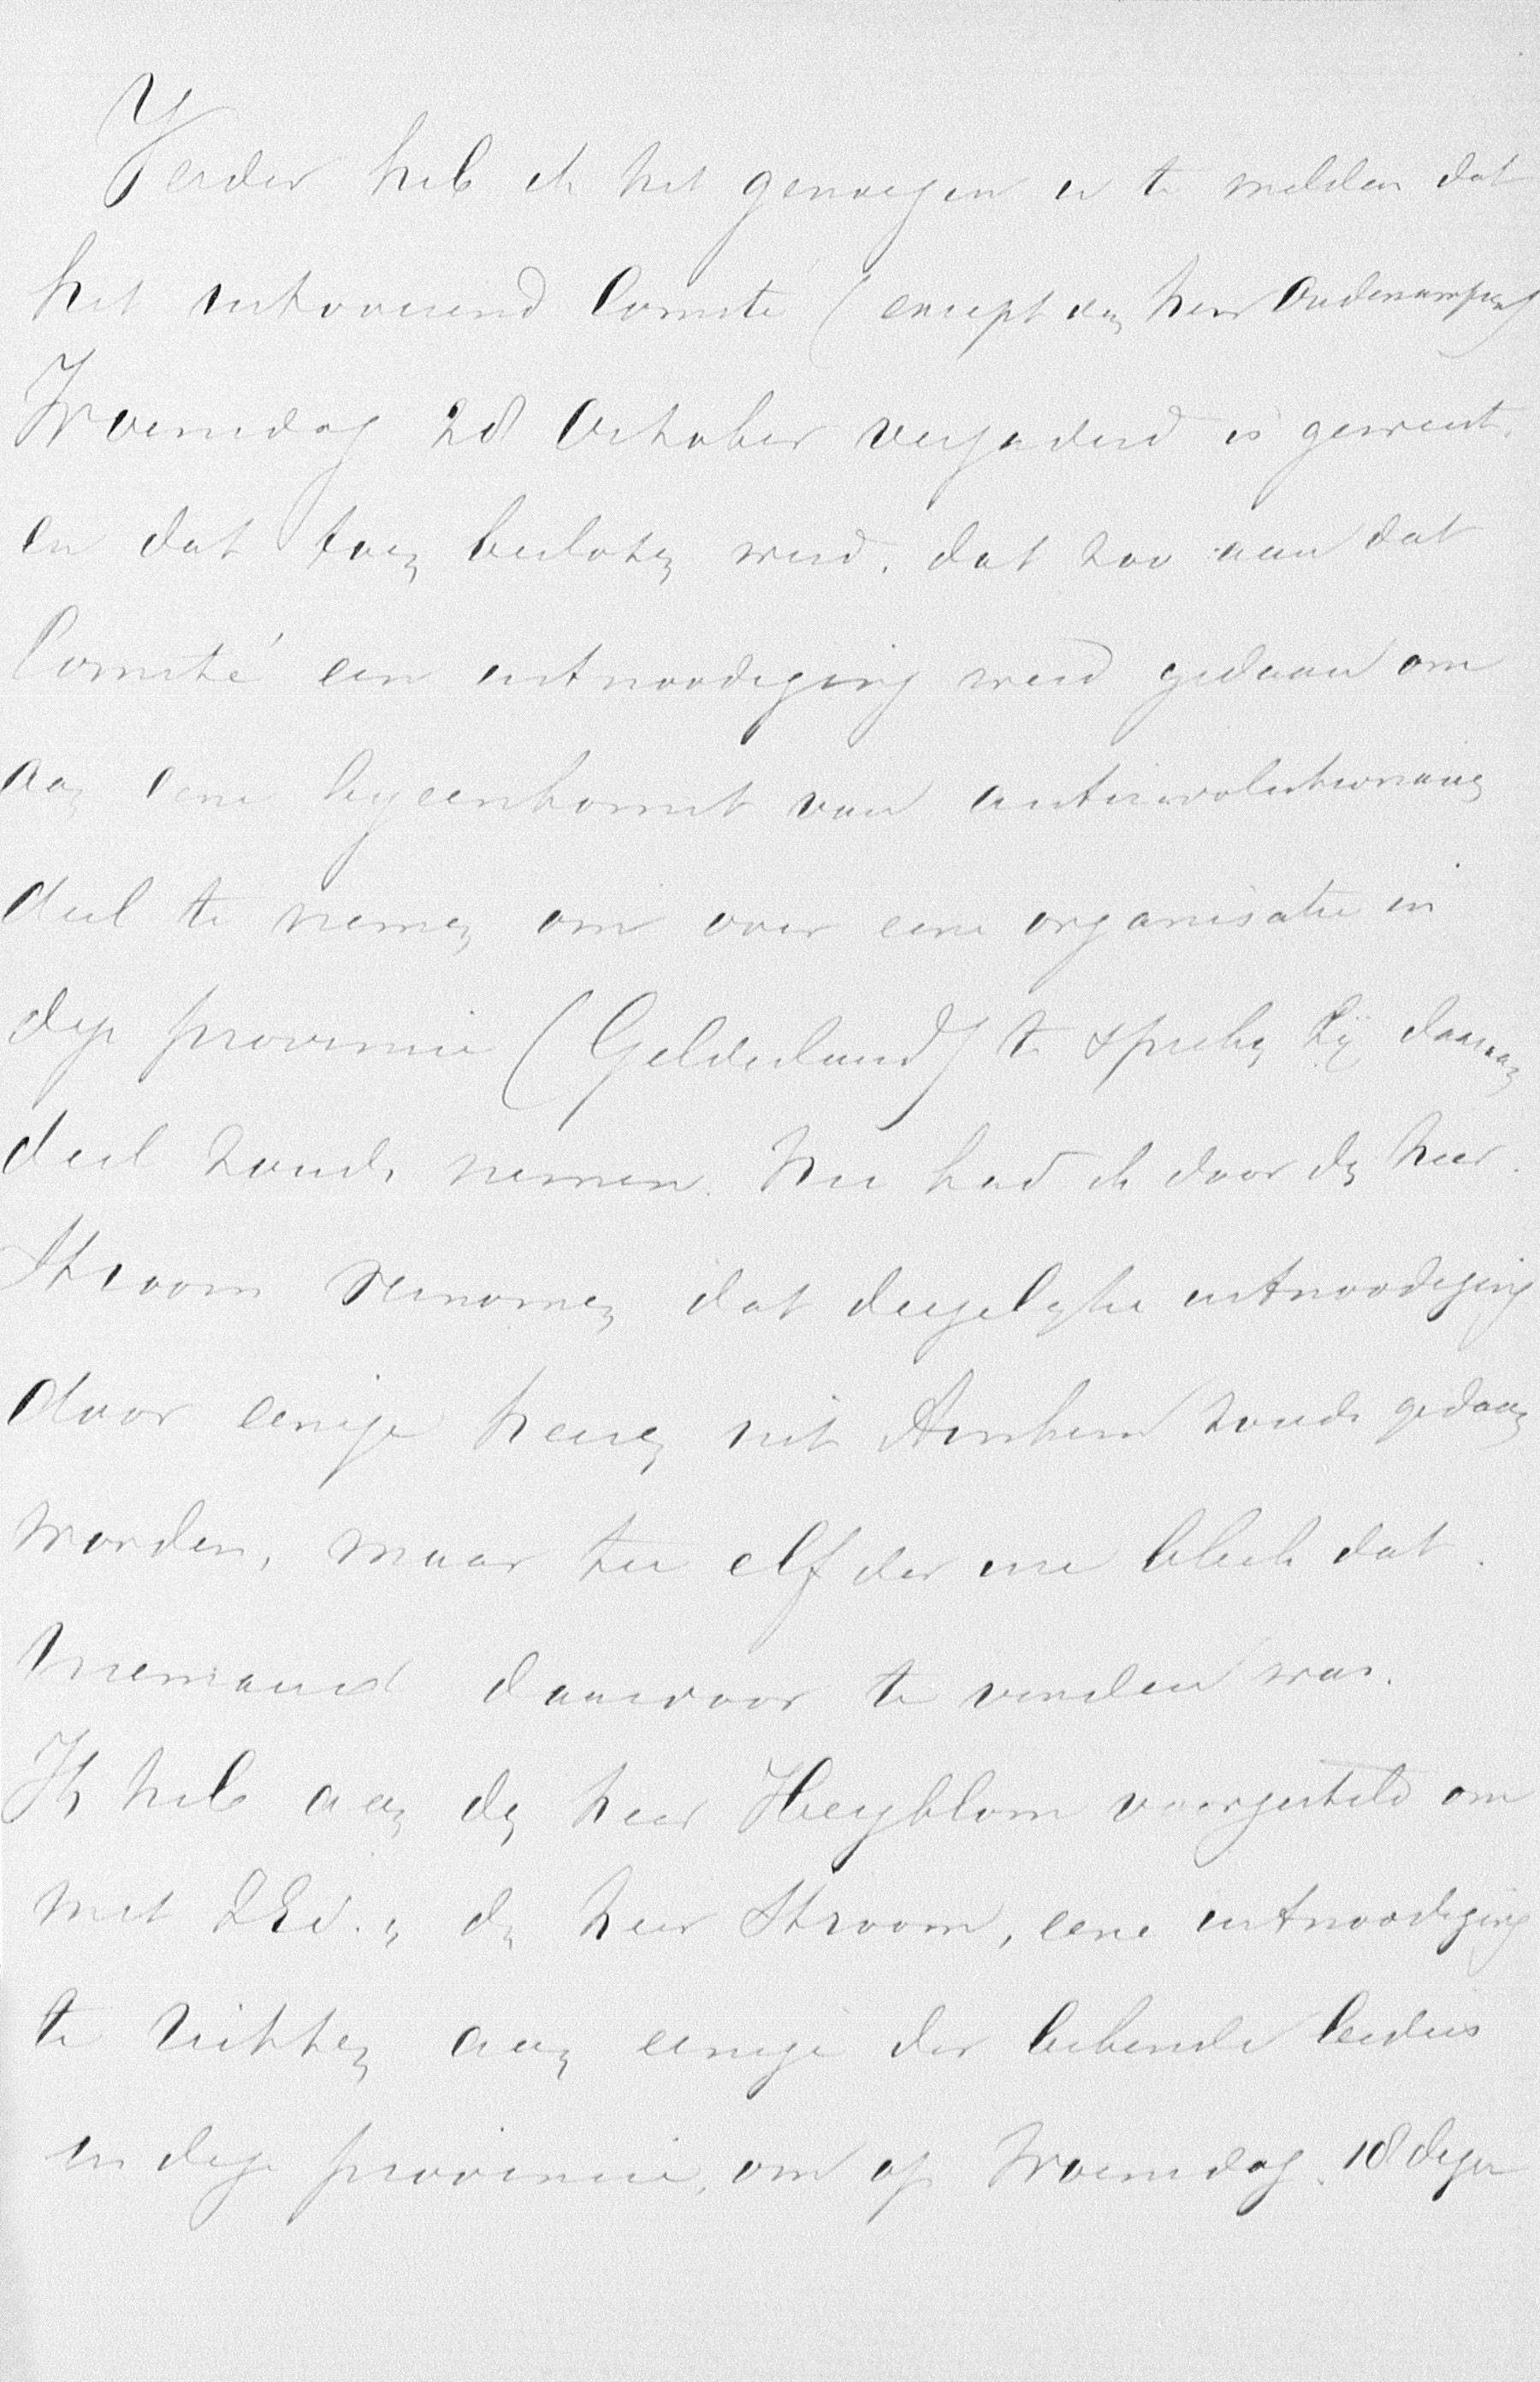 Verder heb ik het genoegen u te melden dat
het uitvoerend Comité (except den heer Oudenampsen)
Woensdag 28 October vergaderd is geweest,
en dat toen besloten werd, dat zoo aan dat
Comité een uitnoodiging werd gedaan om
aan eene byeenkomst van antirevolutionairen
deel te nemen om over eene organisatie in
deze provincie (Gelderland) te spreken zij daaraan
deel zoude nemen. Nu had ik door den heer
Stroom vernomen dat dergelyke uitnoodiging
door eenige heeren uit Arnhem zoude gedaan
worden, maar ter elfder ure bleek dat
niemand daarvoor te vinden was.
Ik heb aan den heer Heyblom voorgesteld om
met ZEd. en den heer Stroom, eene uitnoodiging
te richten aan eenige der bekende leiders
in deze provincie, om op Woensdag 18 dezer